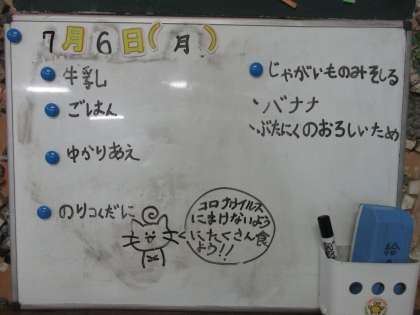 7月6日(月)
牛乳
ごはん
ゆかりあえ
のりつくだに
じゃがいものみそしる
バナナ
ぶたにくのおろしいため
コロナウイルス
にまけないよう
に、たくさん食
べよう!!